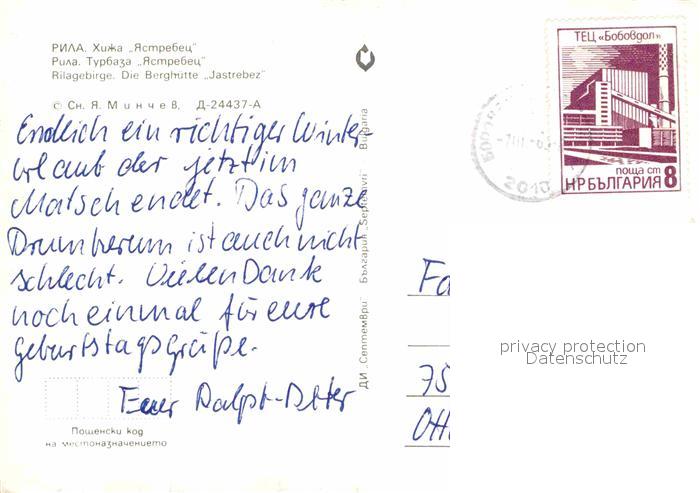 РИЛА. Хижа „Ястребец"
Рила. Турбаза „Ястребец"
Rilagebirge. Die Berghütte „Jastrebez"
© Сн. Я. Минчев, Д-24437-А
Endlich ein richtiger Winter-
urlaub der jetzt im
Matsch endet. Das ganze
Drumherum ist auch nicht
schlecht. Vielen Dank
noch einmal für eure
Geburtstagsgrüße.
Euer
Пощенски код
на местоназначението
ДИ „Септември" България „Septemvri" Bulgaria
ТЕЦ «Бобовдол»
поща ст
НР БЪЛГАРИЯ 8
2010
Fa
75
privacy protection
Datenschutz